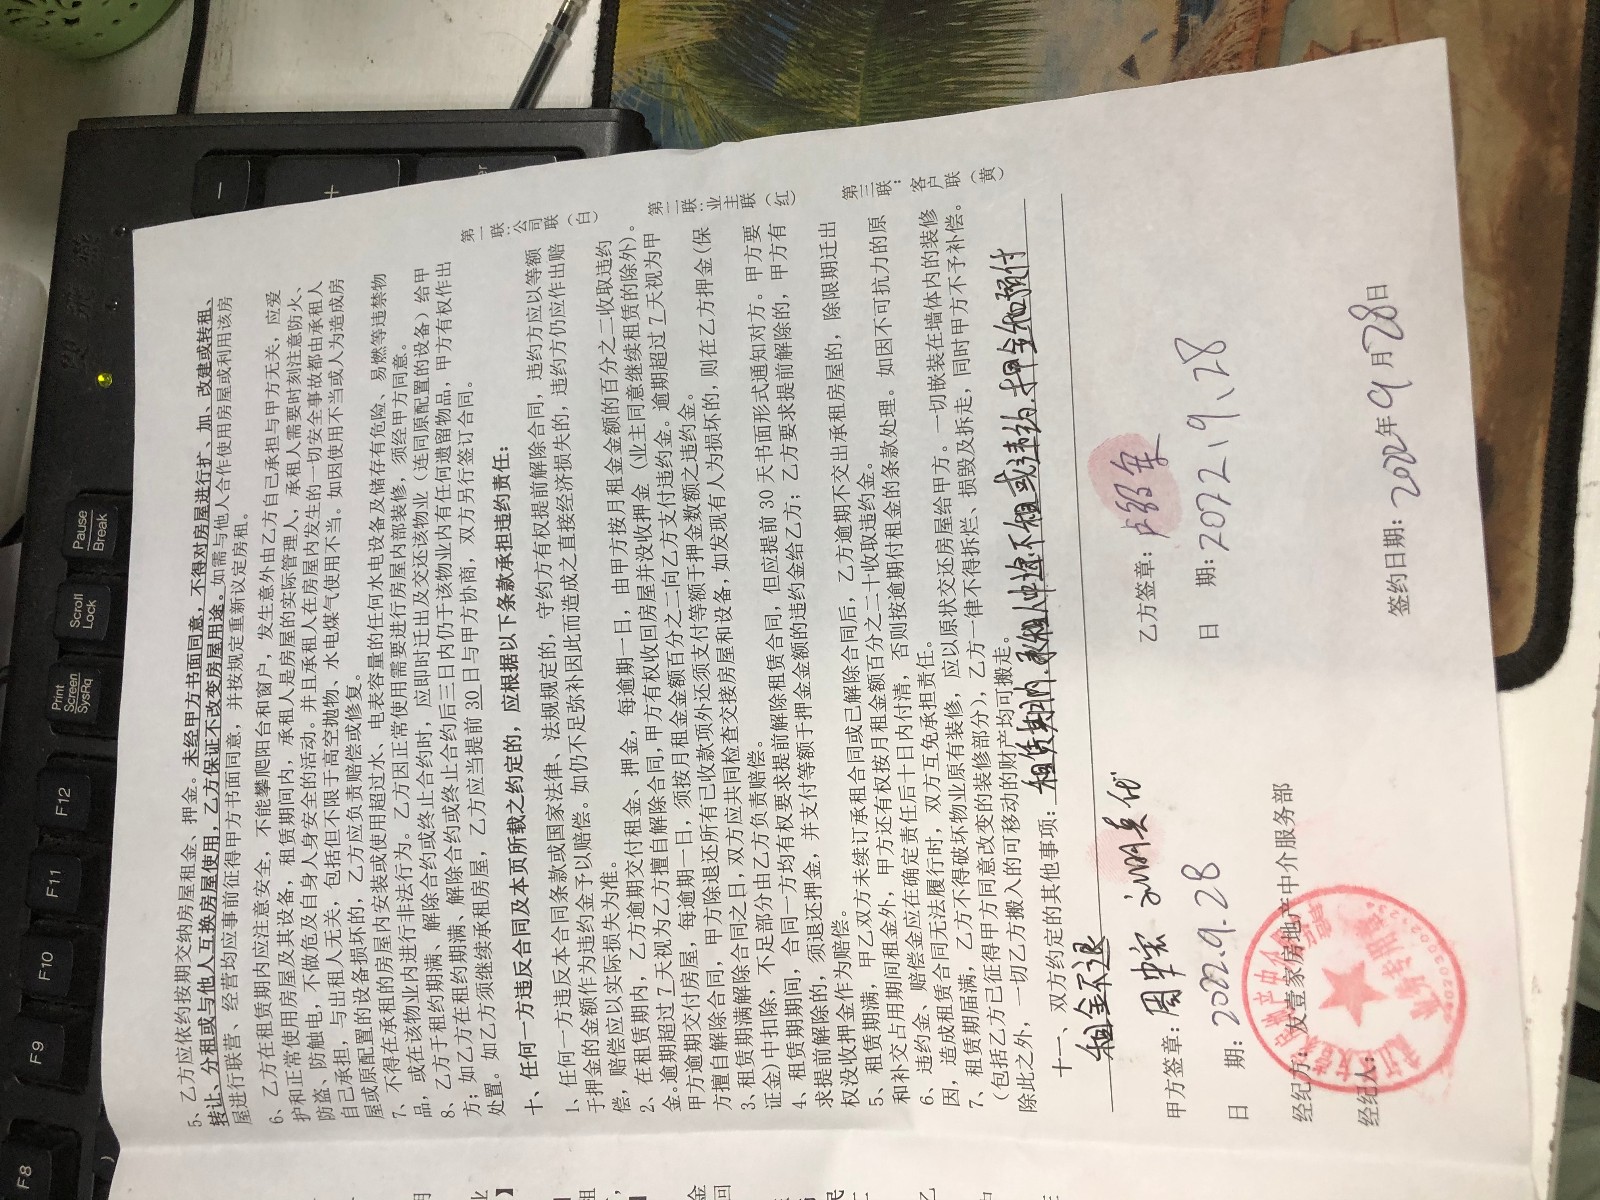 5、乙方应依约按期交纳房屋租金、押金。未经甲方书面同意，不得对房屋进行扩、加、改建或转租、
转让、分租或与他人互换房屋使用，乙方保证不改变房屋用途。如需与他人合作使用房屋或利用该房
屋进行联营、经营均应事前征得甲方书面同意，并按规定重新议定房租。
6、乙方在租赁期内应注意安全，不能攀爬阳台和窗户，发生意外由乙方自己承担与甲方无关，应爱
护和正常使用房屋及其设备，租赁期间内，承租人是房屋的实际管理人，承租人需要时刻注意防火、
防盗、防触电，不做危及自身人身安全的活动。并且承租人在房屋内发生的一切安全事故都由承租人
自己承担，与出租人无关，包括但不限于高空抛物、水电煤气使用不当。如因使用不当或人为造成房
屋或原配置的设备损坏的，乙方应负责赔偿或修复。
7、不得在承租的房屋内安装或使用超过水、电表容量的任何水电设备及储存有危险、易燃等违禁物
品，或在该物业内进行非法行为。乙方因正常使用需要进行房屋内部装修，须经甲方同意。
8、乙方于租约期满、解除合约或终止合约时，应即时迁出及交还该物业（连同原配置的设备）给甲
方；如乙方在租约期满、解除合约或终止合约后三日内仍于该物业内有任何遗留物品，甲方有权作出
处置。如乙方须继续承租房屋，乙方应当提前 30 日与甲方协商，双方另行签订合同。
十、任何一方违反合同及本页所载之约定的，应根据以下条款承担违约责任：
1、任何一方违反本合同条款或国家法律、法规规定的，守约方有权提前解除合同，违约方应以等额
于押金的金额作为违约金予以赔偿。如仍不足弥补因此而造成之直接经济损失的，违约方仍应作出赔
偿，赔偿应以实际损失为准。
2、在租赁期内，乙方逾期交付租金、押金，每逾期一日，由甲方按月租金金额的百分之二收取违约
金。逾期超过 7 天视为乙方擅自解除合同，甲方有权收回房屋并没收押金（业主同意继续租赁的除外）。
甲方逾期交付房屋，每逾期一日，须按月租金金额百分之二向乙方支付违约金。逾期超过 7 天视为甲
方擅自解除合同，甲方除退还所有已收款项外还须支付等额于押金数额之违约金。
3、租赁期满解除合同之日，双方应共同检查交接房屋和设备，如发现有人为损坏的，则在乙方押金（保
证金）中扣除，不足部分由乙方负责赔偿。
4、租赁期期间，合同一方均有权要求提前解除租赁合同，但应提前 30 天书面形式通知对方。甲方要
求提前解除的，须退还押金，并支付等额于押金金额的违约金给乙方；乙方要求提前解除的，甲方有
权没收押金作为赔偿。
5、租赁期满，甲乙双方未续订承租合同或已解除合同后，乙方逾期不交出承租房屋的，除限期迁出
和补交占用期间租金外，甲方还有权按月租金额百分之二十收取违约金。
6、违约金、赔偿金应在确定责任后十日内付清，否则按逾期付租金的条款处理。如因不可抗力的原
因，造成租赁合同无法履行时，双方互免承担责任。
7、租赁期届满，乙方不得破坏物业原有装修，应以原状交还房屋给甲方。一切嵌装在墙体内的装修
（包括乙方已征得甲方同意改变的装修部分），乙方一律不得拆烂、损毁及拆走，同时甲方不予补偿。
除此之外，一切乙方搬入的可移动的财产均可搬走。
十一、双方约定的其他事项：租赁期内，承租人中途不租或违约，押金和预付
租金不退
第一联：公司联（白）
第二联：业主联（红）
第三联：客户联（黄）
甲方签章：
乙方签章：
日 期：2022.9.28
日 期：2022、9、28
经纪方：友壹家房地产中介服务部
经纪人：
签约日期：2022年9月28日
Pause
Break
Scroll
Lock
Print
Screen
SysRq
F12
F11
F10
F9
F8